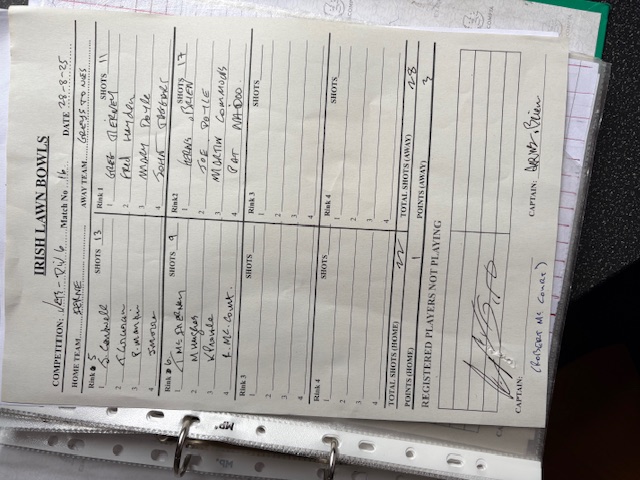 IRISH LAWN BOWLS
COMPETITION: Vets - Div 6 Match No 16 DATE 28-8-25
HOME TEAM AWAY TEAM GREYSTONES
Rink 5 SHOTS 13 Rink 1 SHOTS 11
1 1 GREG TIERNEY
2 2 Fred Hayden
3 3 MARY Doyle
4 4 JOHN
Rink 6 SHOTS 9 Rink2 SHOTS 17
1 1 O'BRIEN
2 M Hughes 2 JOE DOYLE
3 3 MARTIN COMMONS
4 R. Mc Court. 4 PAT NAIDOO.
Rink 3 SHOTS Rink 3 SHOTS
1 1
2 2
3 3
4 4
Rink 4 SHOTS Rink 4 SHOTS
1 1
2 2
3 3
4 4
TOTAL SHOTS (HOME) 22 TOTAL SHOTS (AWAY) 28
POINTS (HOME) 1 POINTS (AWAY) 3
REGISTERED PLAYERS NOT PLAYING
CAPTAIN: CAPTAIN: O'Brien
(ROBERT Mc COURT)